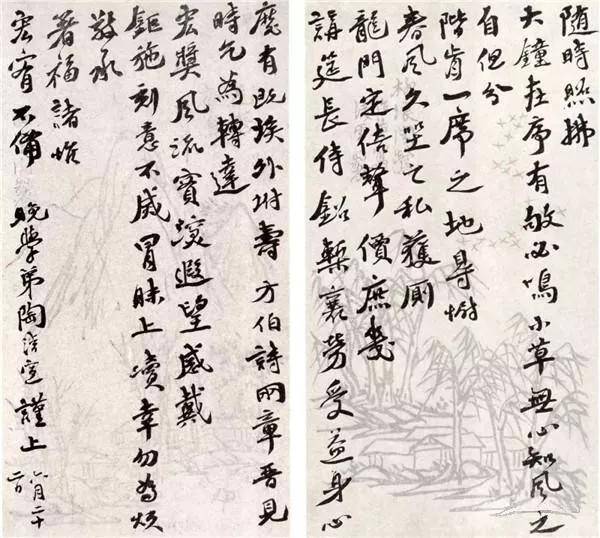 隨時照拂
大鐘在序有敂必鳴小草無心知風之
自但分
階前一席之地尋
春風久坐之私獲廁
龍門定倍聲價庶幾
講筵長侍鉛槧襄勞受益身心
靡有既矣外坿壽方伯詩兩章晉見
時乞為轉達
宏獎風流寶 遐望感戴
鉅施刻意不感冒昧上瀆幸勿為煩
敬承
著福諸惟
宏宥不備
晚學弟陶濬宣謹上
六月二十
二日